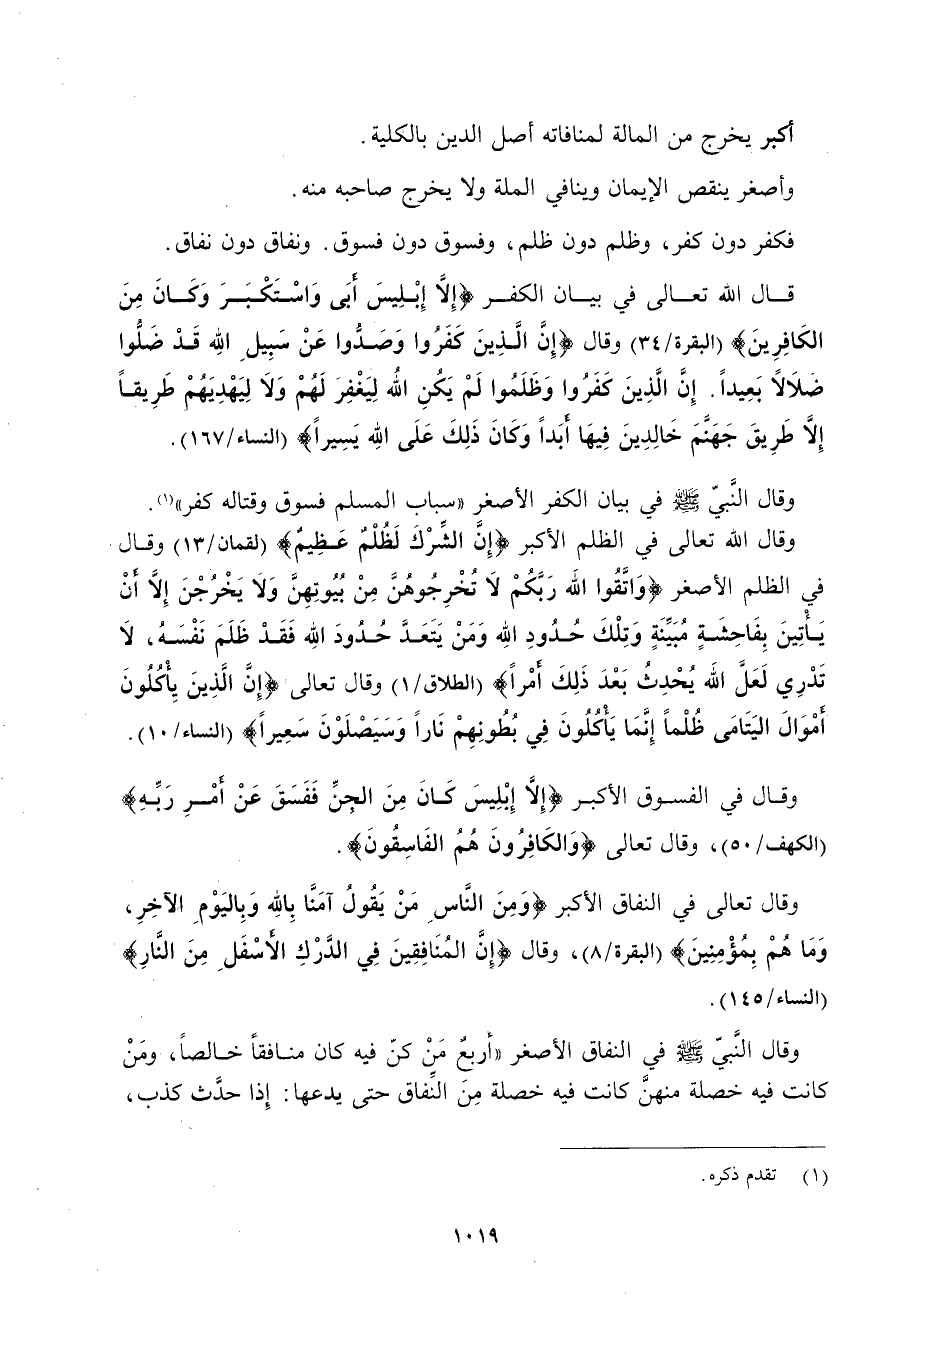 أكبر يخرج من المالة لمنافاته أصل الدين بالكلية.
وأصغر ينقص الإيمان وينافي الملة ولا يخرج صاحبه منه.
فكفر دون كفر، وظلم دون ظلم، وفسوق دون فسوق. ونفاق دون نفاق.
قال الله تعالى في بيان الكفر ﴿إلَّا إبْلِيسَ أَبَى وَاسْتَكْبَرَ وَكَانَ مِنَ
الكَافِرِينَ﴾ (البقرة/٣٤) وقال ﴿إِنَّ الَّذِينَ كَفَرُوا وَصَدُّوا عَنْ سَبِيلِ الله قَدْ ضَلُّوا
ضَلَالاً بَعِيداً. إِنَّ الَّذِينَ كَفَرُوا وَظَلَمُوا لَمْ يَكُنِ اللهُ لِيَغْفِرَ لَهُمْ وَلَا لِيَهْدِيَهُمْ طَرِيقاً
إِلَّا طَرِيقَ جَهَنَّمَ خَالِدِينَ فِيهَا أَبَداً وَكَانَ ذَلِكَ عَلَى اللهِ يَسِيراً﴾ (النساء/١٦٧).
وقال النَّبيّ ﷺ في بيان الكفر الأصغر «سباب المسلم فسوق وقتاله كفر»(١).
وقال الله تعالى في الظلم الأكبر ﴿إِنَّ الشِّرْكَ لَظُلْمٌ عَظِيمٌ﴾ (لقمان/١٣) وقال
في الظلم الأصغر ﴿وَاتَّقُوا الله رَبَّكُمْ لَا تُخْرِجُوهُنَّ مِنْ بُيُوتِهِنَّ وَلَا يَخْرُجْنَ إِلَّا أَنْ
يَأْتِينَ بِفَاحِشَةٍ مُبَيِّنَةٍ وَتِلْكَ حُدُودِ اللهِ وَمَنْ يَتَعَدَّ حُدُودَ اللهِ فَقَدْ ظَلَمَ نَفْسَهُ، لَا
تَدْرِي لَعَلَّ الله يُحْدِثُ بَعْدَ ذَلِكَ أَمْراً﴾ (الطلاق/١) وقال تعالى ﴿إِنَّ الَّذِينَ يَأْكُلُونَ
أَمْوَالَ اليَتَامَى ظُلْماً إِنَّمَا يَأْكُلُونَ فِي بُطُونِهِمْ نَاراً وَسَيَصْلَوْنَ سَعِيراً﴾ (النساء/١٠).
وقال في الفسوق الأكبر ﴿إِلَّا إِبْلِيسَ كَانَ مِنَ الجِنِّ فَفَسَقَ عَنْ أَمْرِ رَبِّهِ﴾
(الكهف/٥٠)، وقال تعالى ﴿وَالكَافِرُونَ هُمُ الفَاسِقُونَ﴾.
وقال تعالى في النفاق الأكبر ﴿وَمِنَ النَّاسِ مَنْ يَقُولُ آمَنَّا بِاللهِ وَبِاليَوْمِ الآخِرِ،
وَمَا هُمْ بِمُؤْمِنِينَ﴾ (البقرة/٨)، وقال ﴿إِنَّ المُنَافِقِينَ فِي الدَّرْكِ الأَسْفَلِ مِنَ النَّارِ﴾
(النساء/١٤٥).
وقال النَّبيّ ﷺ في النفاق الأصغر «أربعٌ مَنْ كنّ فيه كان منافقاً خالصاً، ومَنْ
كانت فيه خصلة منهنَّ كانت فيه خصلة مِنَ النِّفاق حتى يدعها: إذا حدَّث كذب،
(١) تقدم ذكره.
١٠١٩